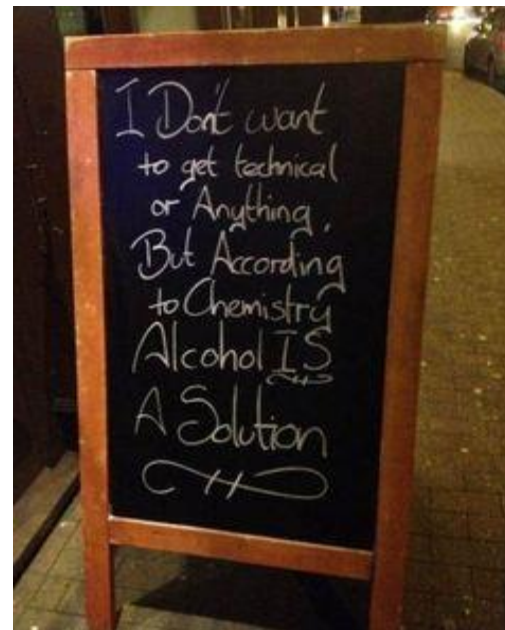 I Don't want
to get technical
or Anything,
But According
to Chemistry
Alcohol IS
A Solution